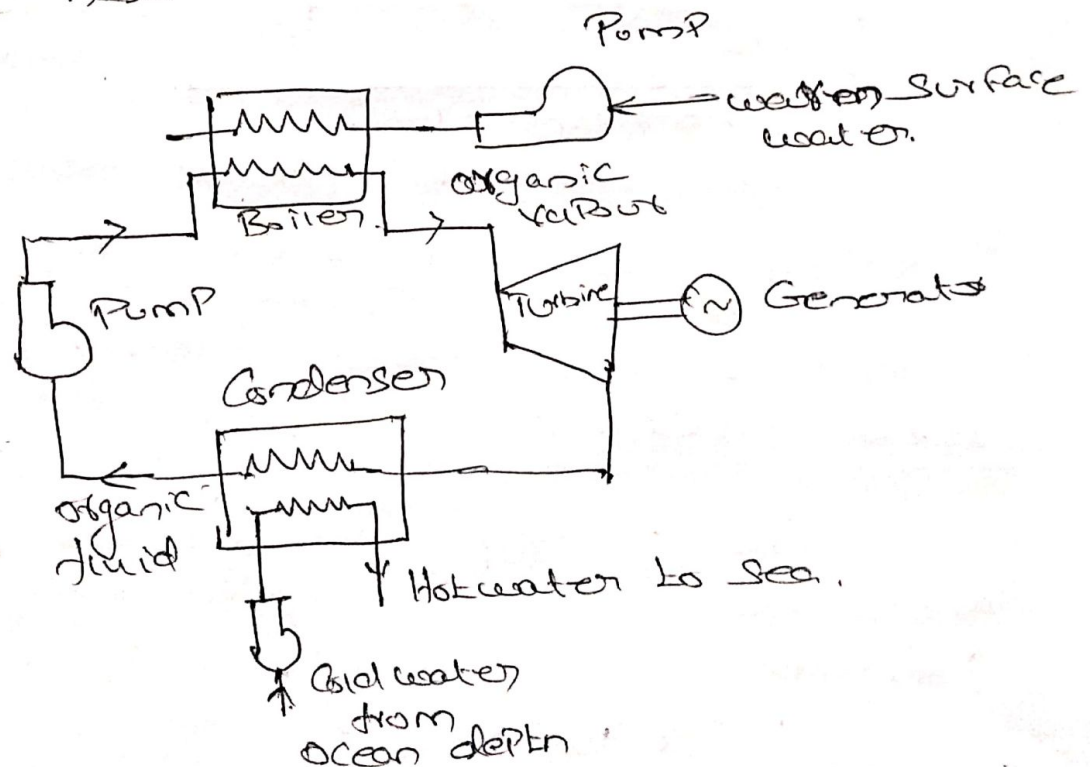 Pump
warm surface
water.
organic
vapour
Boiler.
Pump
Turbine
Generator
Condenser
organic
fluid
Hot water to sea.
Cold water
from
ocean depth